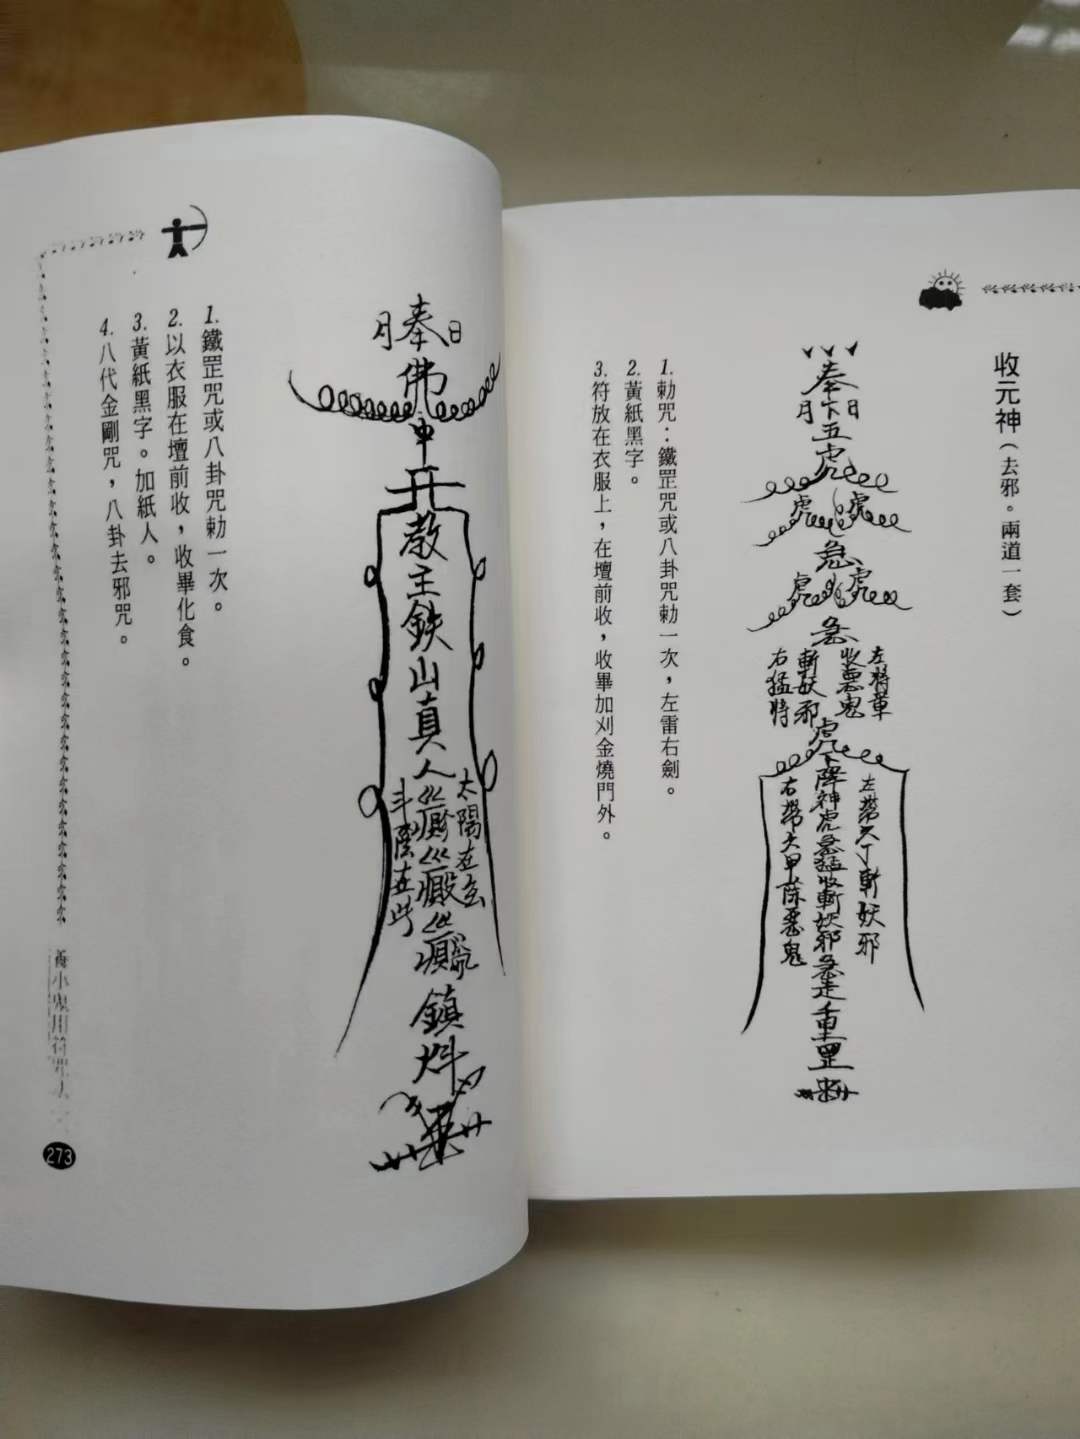 收元神（去邪。兩道一套）
奉下五虎
日
月
虎
虎
急
虎
虎
急
左將軍
收惡鬼
斬妖邪
右猛將
虎下降神虎急猛收斬妖邪急走重罡
左帶六丁斬妖邪
右帶六甲除惡鬼
1. 勅咒：鐵罡咒或八卦咒勅一次，左雷右劍。
2. 黃紙黑字。
3. 符放在衣服上，在壇前收，收畢加刈金燒門外。
日
奉佛
月
教主鉄山真人
太陽在
斗
在此
鎮
1. 鐵罡咒或八卦咒勅一次。
2. 以衣服在壇前收，收畢化食。
3. 黃紙黑字。加紙人。
4. 八代金剛咒，八卦去邪咒。
273